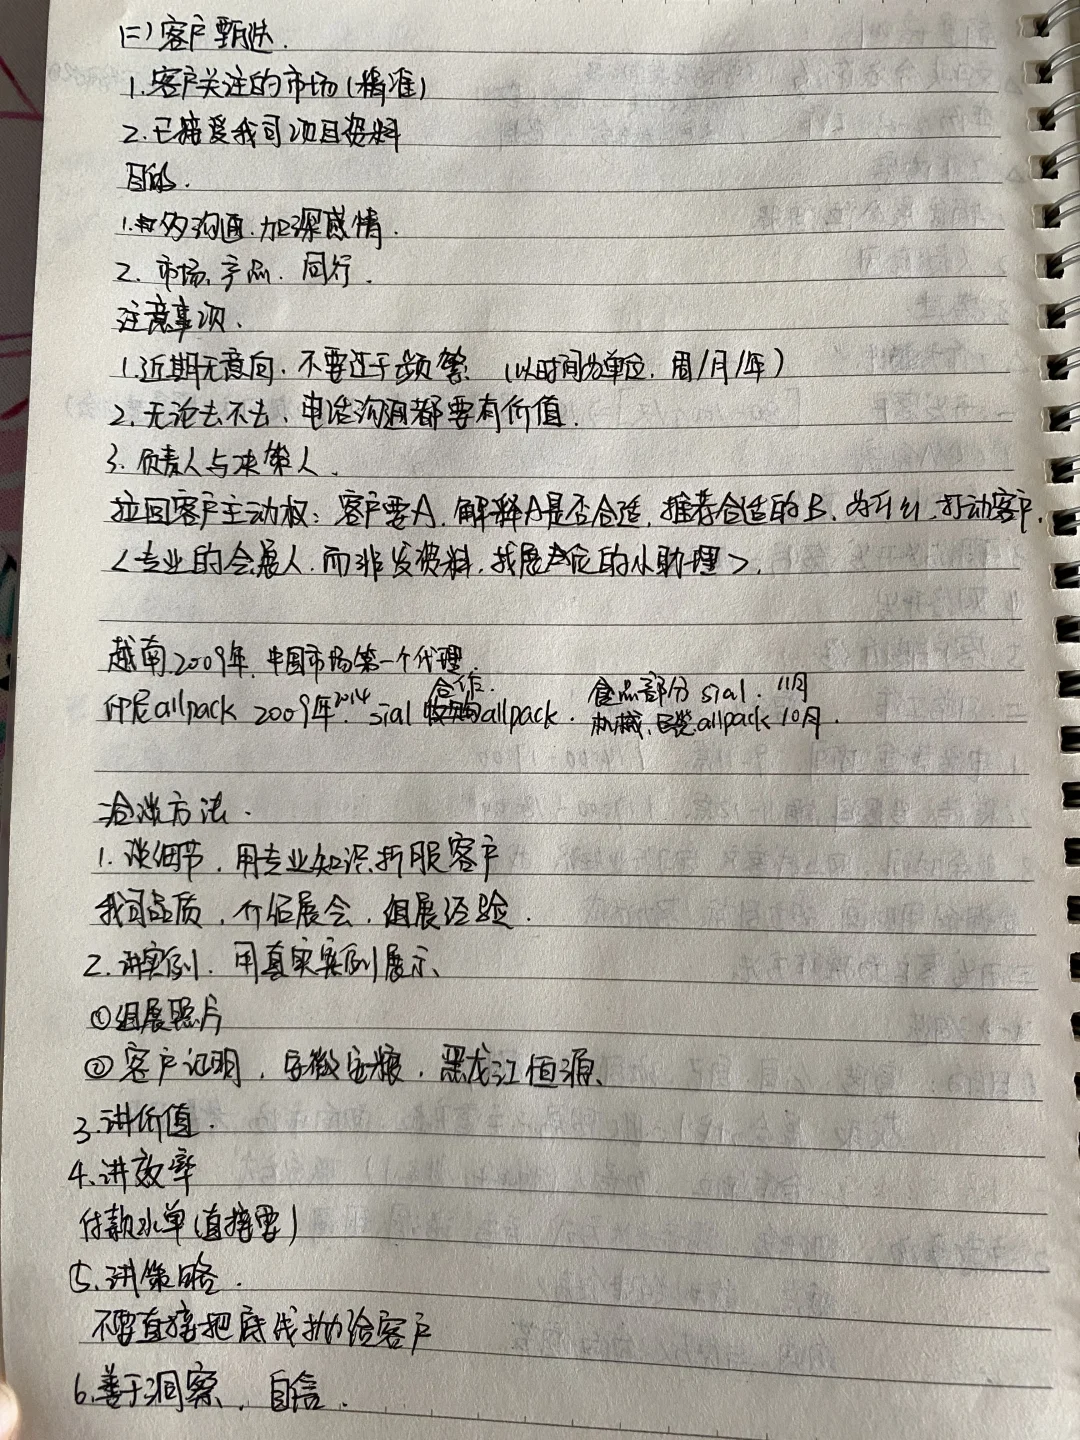 (二)客户甄选.
1.客户关注的市场(精准)
2.已接受我司项目资料
目的.
1.多沟通.加深感情.
2. 市场、产品. 同行.
注意事项、
1.近期无意向.不要过于频繁 (以时间为单位.周/月/年)
2.无论去不去、电话沟通都要有价值.
3.负责人与决策人.
拉回客户主动权:客户要A.解释A是否合适.推荐合适的B.为什么.打动客户.
<专业的会展人.而非发资料.找展位的小助理>.
越南.2009年.中国市场第一个代理.
印尼allpack 2009年.2014 sial 合作allpack. 食品部分sial. 11月
机械、包装allpack 10月.
洽谈方法.
1.谈细节.用专业知识折服客户
我司品质.介绍展会.组展经验.
2.讲实例.用真实案例展示、
①组展照片
②客户证明.黑龙江恒源、
3.讲价值.
4.讲效率
付款水单(直接要)
5.讲策略.
不要直接把底线抛给客户
6.善于洞察.自信.